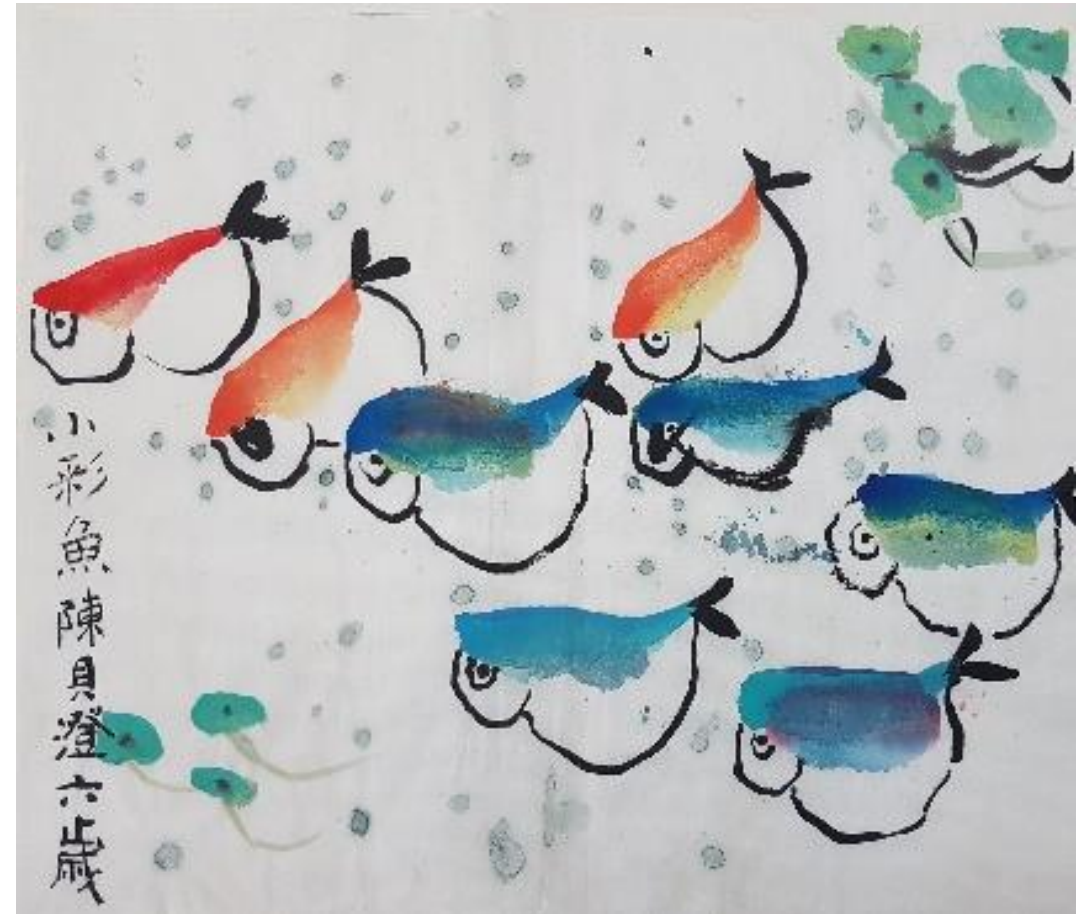 小彩魚陳貝澄六歲